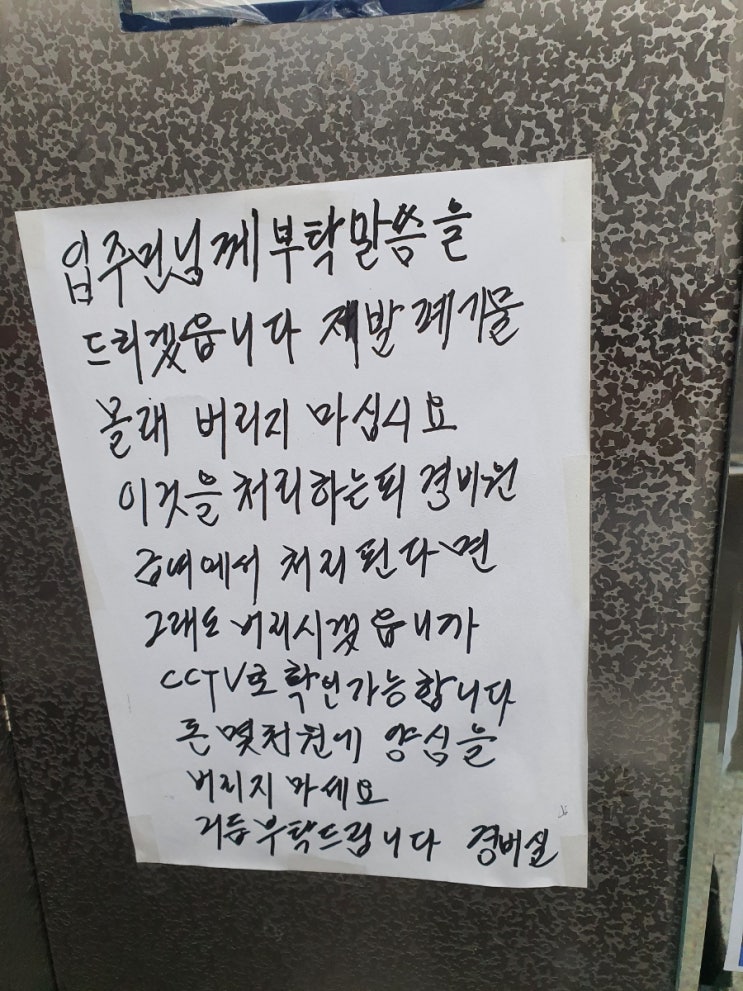 입주민님께 부탁말씀을
드리겠읍니다 제발 폐기물
몰래 버리지 마십시요
이것을 처리하는데 경비원
급여에서 처리된다면
그래도 버리시겠읍니까
CCTV로 확인가능합니다
돈 몇천원에 양심을
버리지 마세요
거듭부탁드립니다 경비실